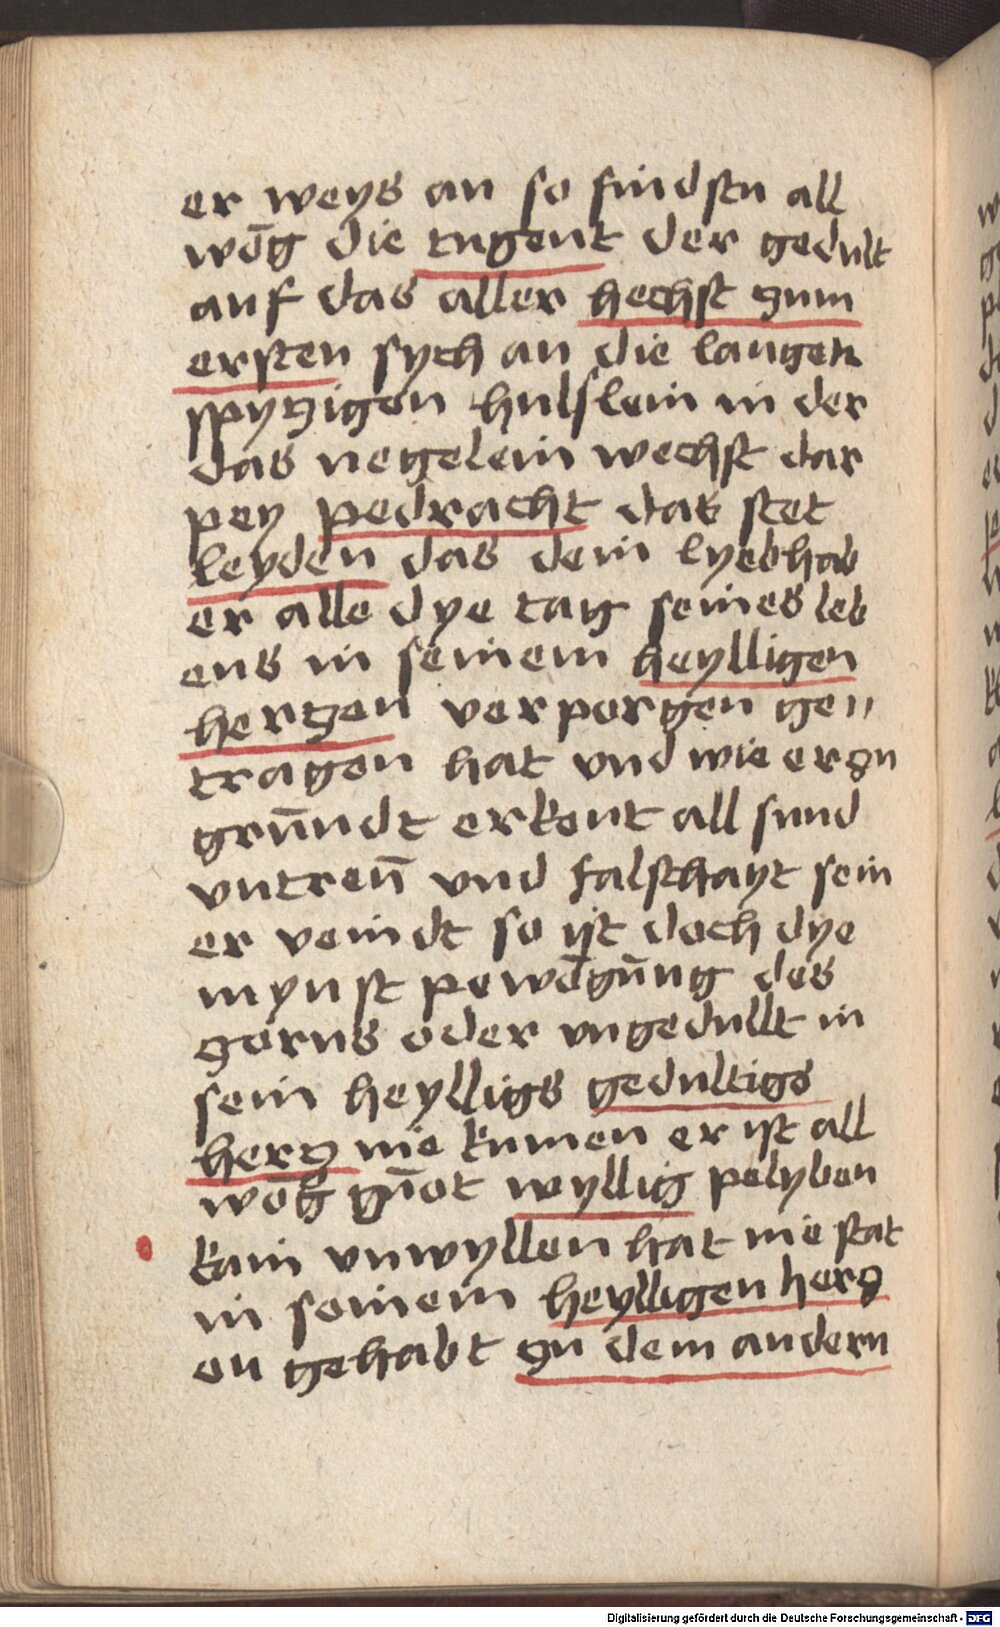 er weys an so findstu all
wo̅g die tugent der gedult
auf das aller hechst zum
ersten sych an die langen
spyzigen hulslein in der
das negelein wechst dar
pey pedracht das stet
leyden das dem lyebhab
er alle dye tag seines leb
ens in seinem heylligen
hertzen verporgen ge〃
tragen hat vnd wie er zu
gru̅ndt erkent all sund
vntreu̅ vnd falschayt sein
er veindt so ist doch dye
mynst pewo̅gu̅ng des
zorns oder vngedullt in
sein heylligs gedultigs
herz nie kumen er ist all
wo̅g gu̅ot wyllig pelyben
kain vnwyllen hat nie stat
in seinem heylligen herz
en gehabt zu dem andern
Digitalisierung gefördert durch die Deutsche Forschungsgemeinschaft - DFG